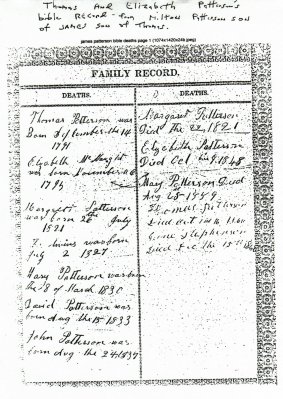 Thomas And Elizabeth Patterson's
Bible Record from Milton Patterson son
of James son of Thomas.
james patterson bible deaths page 1 (1074x1400x24b jpeg)
FAMILY RECORD.
DEATHS.
Thomas Patterson was
Born September the 14
1791
Elizabeth McKnight
was born November 06
1796
Margaret Patterson
was born 28th July
1821
was born
July 2 1827
Mary Patterson was born
the 8 of March 1830
David Patterson was
born Aug the 15 1833
John Patterson was
born Aug the 24 1837
DEATHS.
Margaret Patterson
Died The 22 1821
Elizabeth Patterson
Died Oct 1848
Mary Patterson Died
Aug
Thomas Patterson
Died Oct
Stephenson
Died Dec the 15